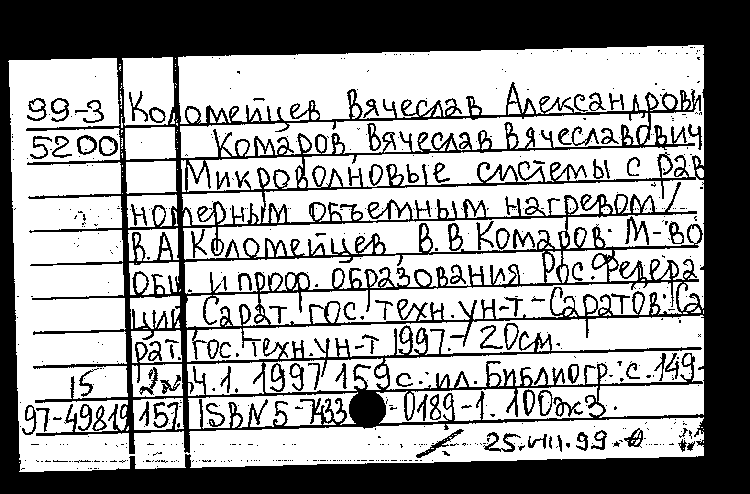 99-3 Коломейцев, Вячеслав Александрови
5200 Комаров, Вячеслав Вячеславович
Микроволновые системы с рав
номерным объемным нагревом /
В.А. Коломейцев, В.В Комаров; М-во
общ. и проф. образования Рос. Федера-
ции, Сарат. гос. техн. ун-т. - Саратов: Са
рат. гос. техн. ун-т, 1997. - / 20см.
15 Ч.1. 1997 159 с.: ил. Библиогр.: с. 149-
97-49819 157. ISBN 5-7433 -0189-1. 100экз.
25.VIII.99.